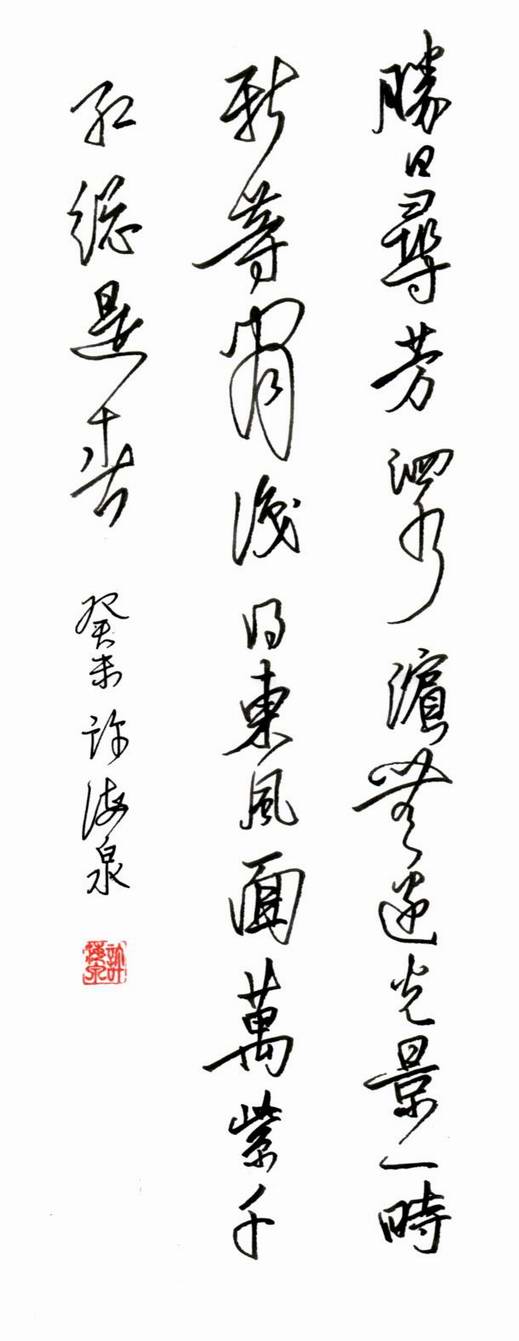 勝日尋芳泗水濱無邊光景一時
新等閒識得東風面萬紫千
紅總是春 癸未許海泉
許海泉